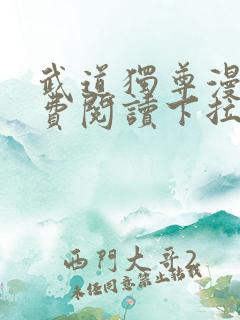 武道獨尊漫
費閱讀下拉
西門大哥2
未經同意禁止轉載